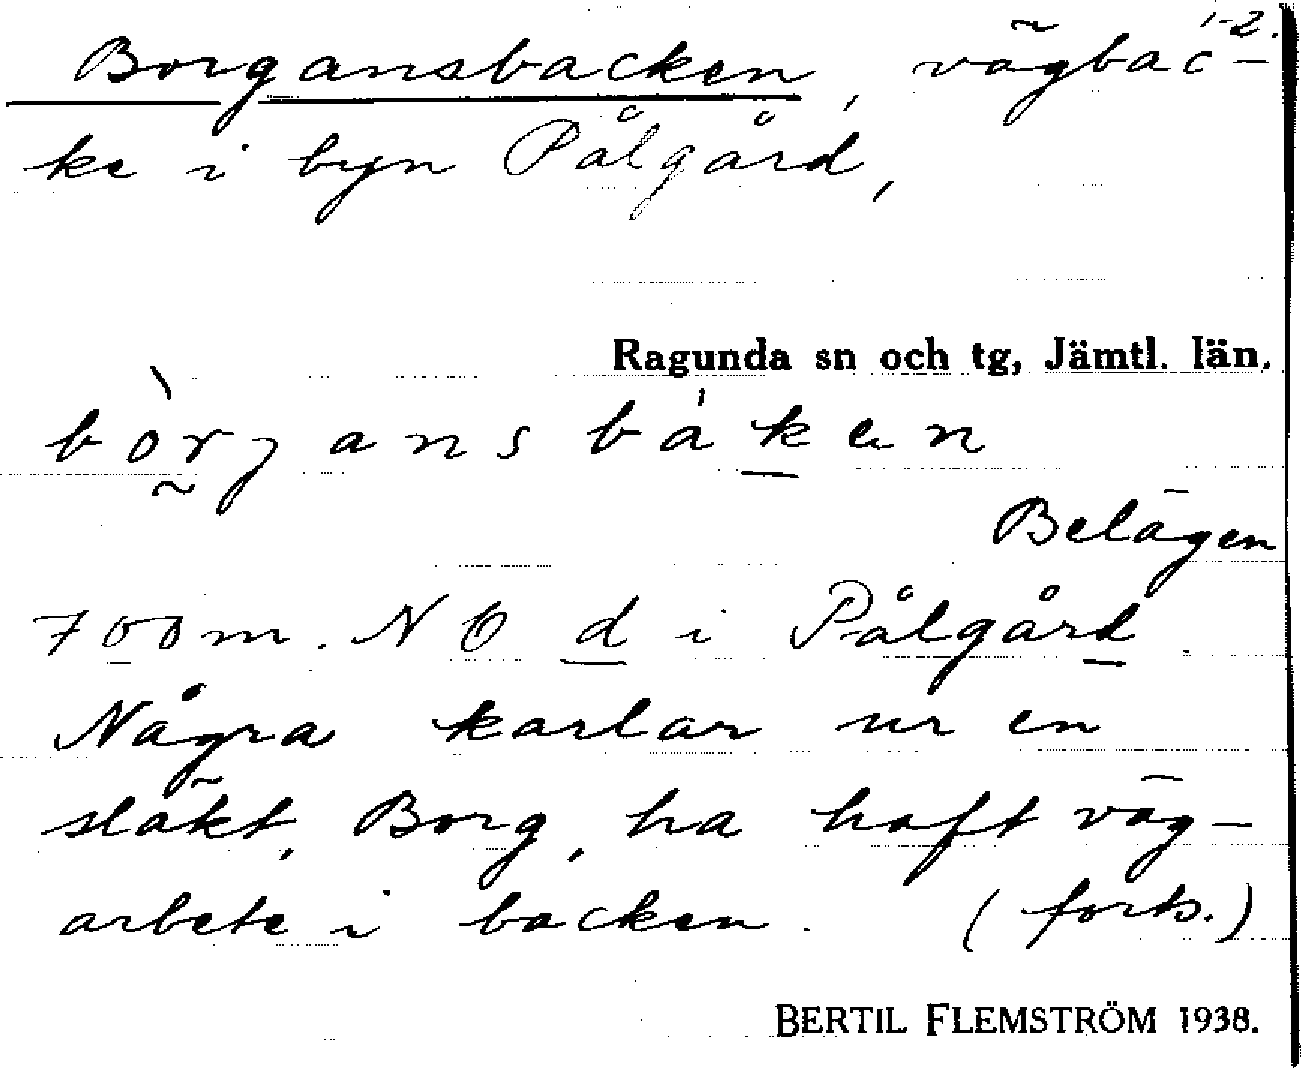 1-2.
Borgansbacken, vägbac-
ke i byn Pålgård,
Ragunda sn och tg, Jämtl. län.
bòrjans bákan
Belägen
700 m. NO d i Pålgård
Några karlar ur en
släkt, Borg, ha haft väg-
arbete i backen. (forts.)
BERTIL FLEMSTRÖM 1938.